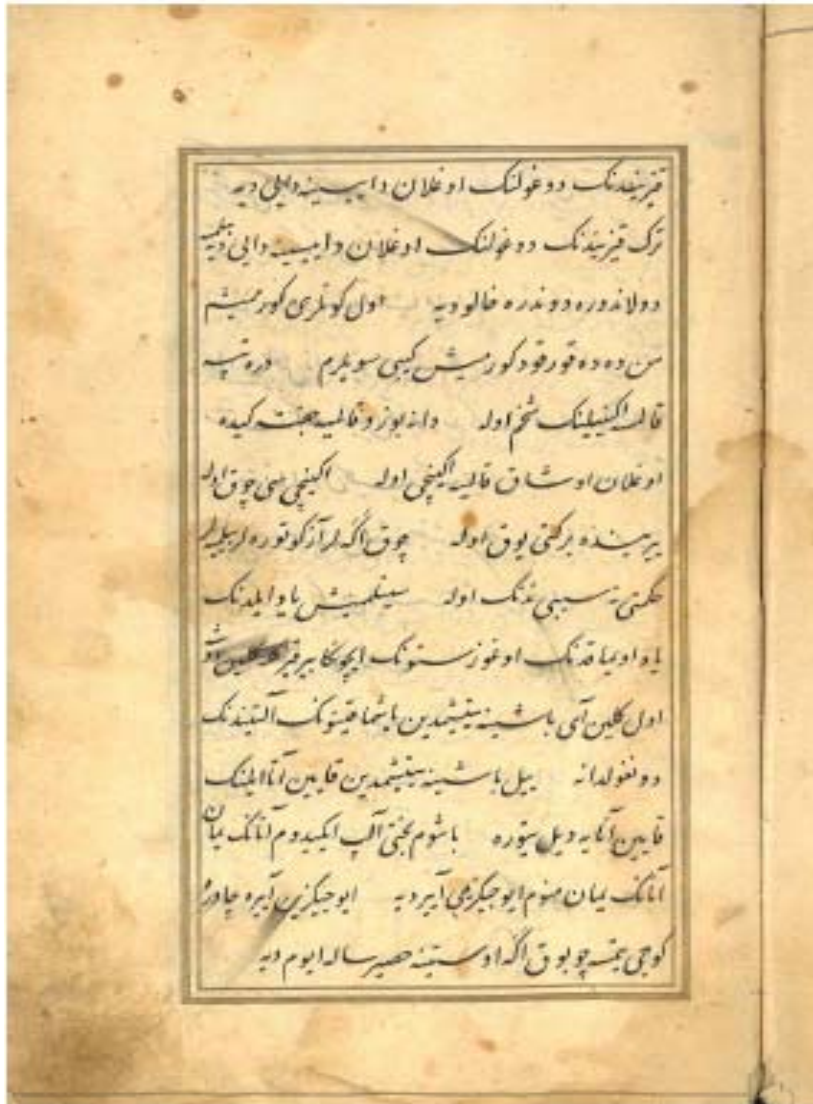 قیزیندنک دوغولنک اوغلان داییسینه دایلی دیه
ترک قیزیندنک دوغولنک اوغلان داییسینه دایی
دولاندوره دوندره خالو دیه اول کونلری کورمیشم
من ده ده قورقود کورمیش کیبی سویلرم دره تپه
قالیه اکینیلنک تخم اوله دانه بوزوقالیه جفته کیده
اوغلان اوشاق قالیه اکینچی اوله اکینچی سی چوق اوله
ییرینده برکتی یوق اوله چوق اگه لر آز کوتوره لر بیله لر
حکمتی نه سیبی ندنک اوله سینلمیش یاو ایلدنک
یاو اویماقدنک اوغوز ستونک ایچونکا بیر قیز کلین
اول کلین آی باشینه ییتیشمدین باشماقینونک آلتیندنک
دونغولدانه ییل باشینه ییتیشمدین قایین آتا ایلنک
قایین آنایه دیل ییتوره باشوم بختی آلپ ایکیدوم آتانک یمان
آنانک یمان منوم ایوجیکزمی آییر دیه ایوجیکزین آییره چادره
کوجی یتمسه چوبوق اگه اوستینه حصیر ساله ایوم دیه